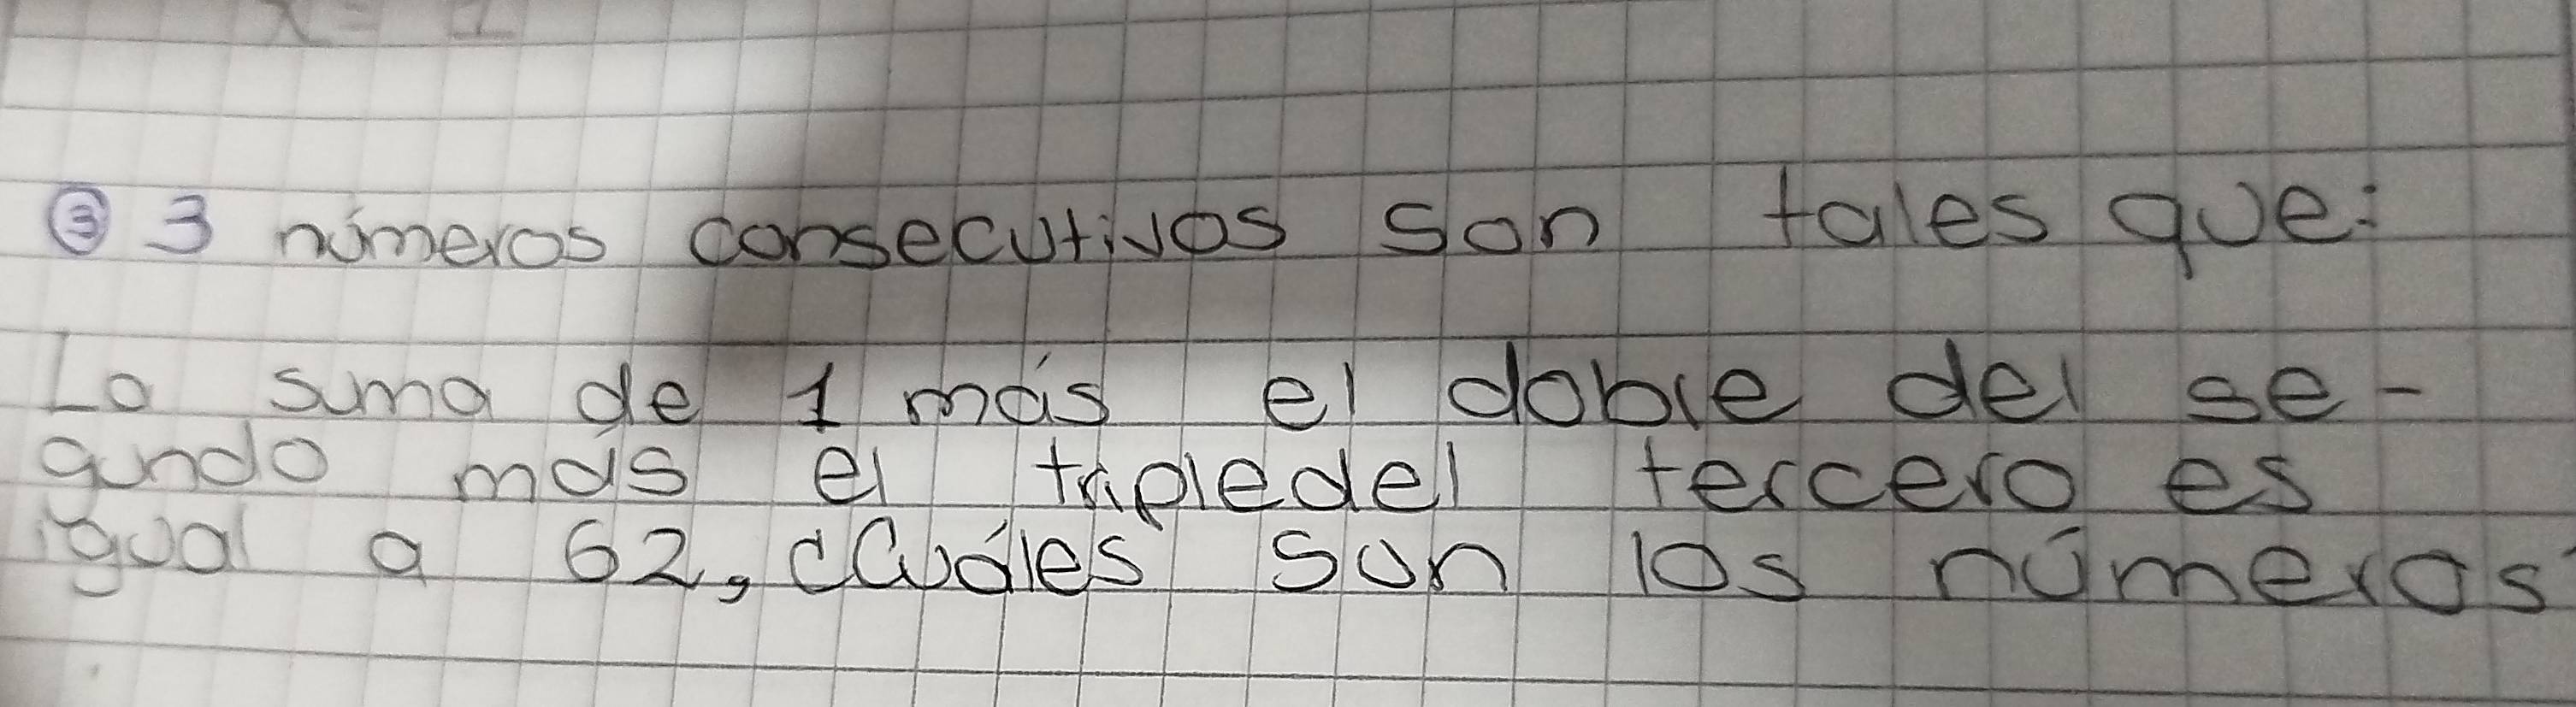 x = 1
③ 3 números consecutivos son tales que:
La suma de 1 más el doble del se-
gundo más el tripledel tercero es
igual a 62, ¿Cuáles son los números